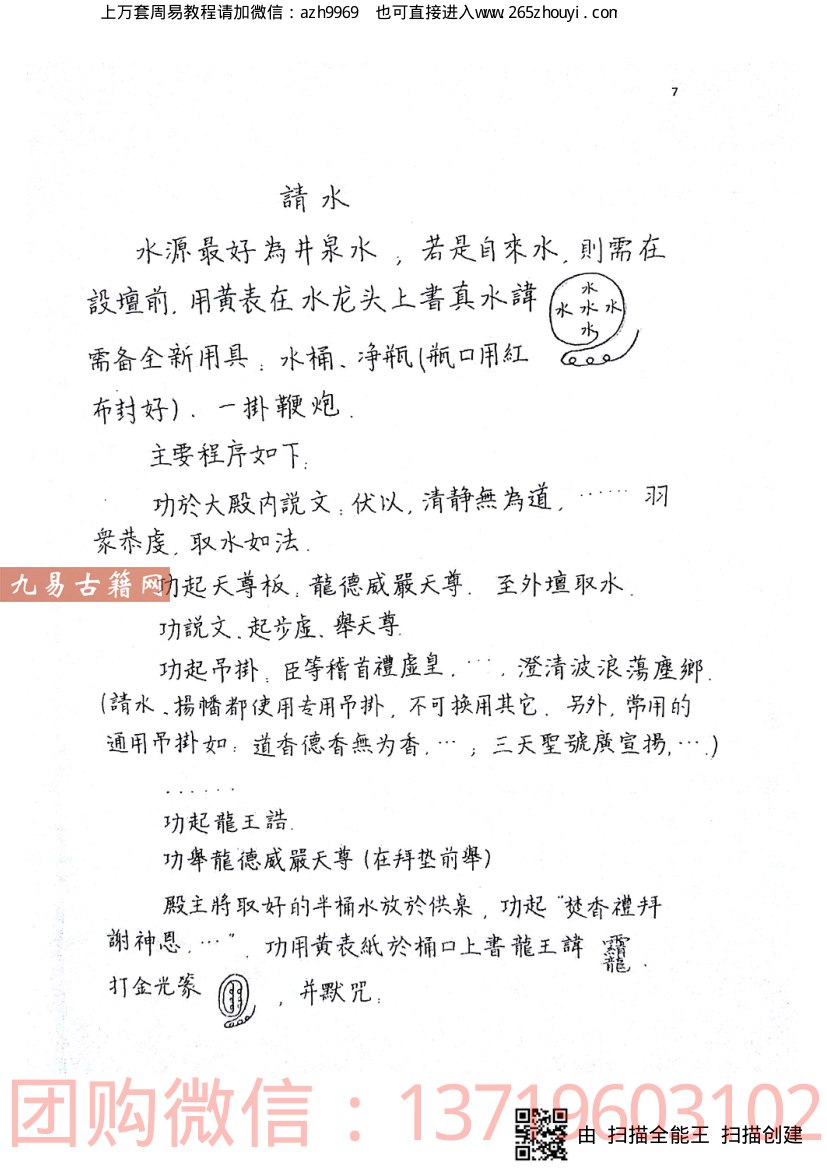 上万套周易教程请加微信：azh9969 也可直接进入www.265zhouyi.com
7
請水
水源最好為井泉水，若是自來水，則需在
設壇前，用黃表在水龙头上書真水諱
水
水水水
水
需备全新用具：水桶、净瓶(瓶口用紅
布封好)、一掛鞭炮．
主要程序如下：
功於大殿内説文：伏以，清静無為道，…… 羽
衆恭虔，取水如法．
九易古籍网
功起天尊板：龍德威嚴天尊．至外壇取水．
功説文、起步虚、舉天尊．
功起吊掛：臣等稽首禮虚皇．…，澄清波浪蕩塵鄉．
(請水、揚幡都使用专用吊掛，不可换用其它．另外，常用的
通用吊掛如：道香德香無为香，…；三天聖號廣宣揚，….)
......
功起龍王誥．
功舉龍德威嚴天尊(在拜垫前舉)
殿主將取好的半桶水放於供桌，功起“焚香禮拜
謝神恩，…”．功用黃表紙於桶口上書龍王諱．
打金光篆，并默咒：
团购微信：13719603102
由 扫描全能王 扫描创建